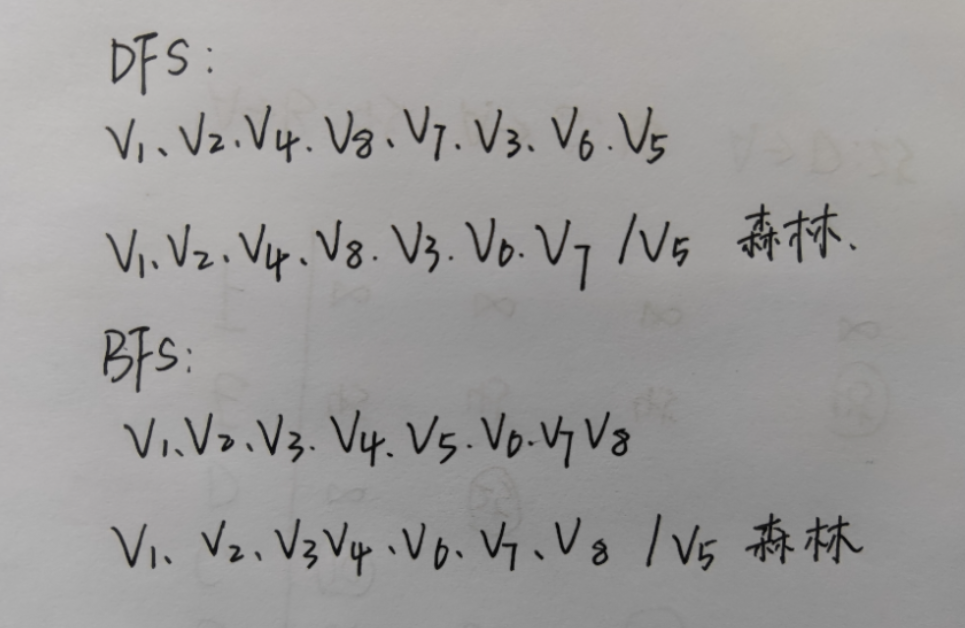 DFS:
V1、V2、V4、V8、V7、V3、V6、V5
V1、V2、V4、V8、V3、V6、V7 /V5 森林、
BFS:
V1、V2、V3、V4、V5、V6、V7 V8
V1、V2、V3 V4、V6、V7、V8 /V5 森林